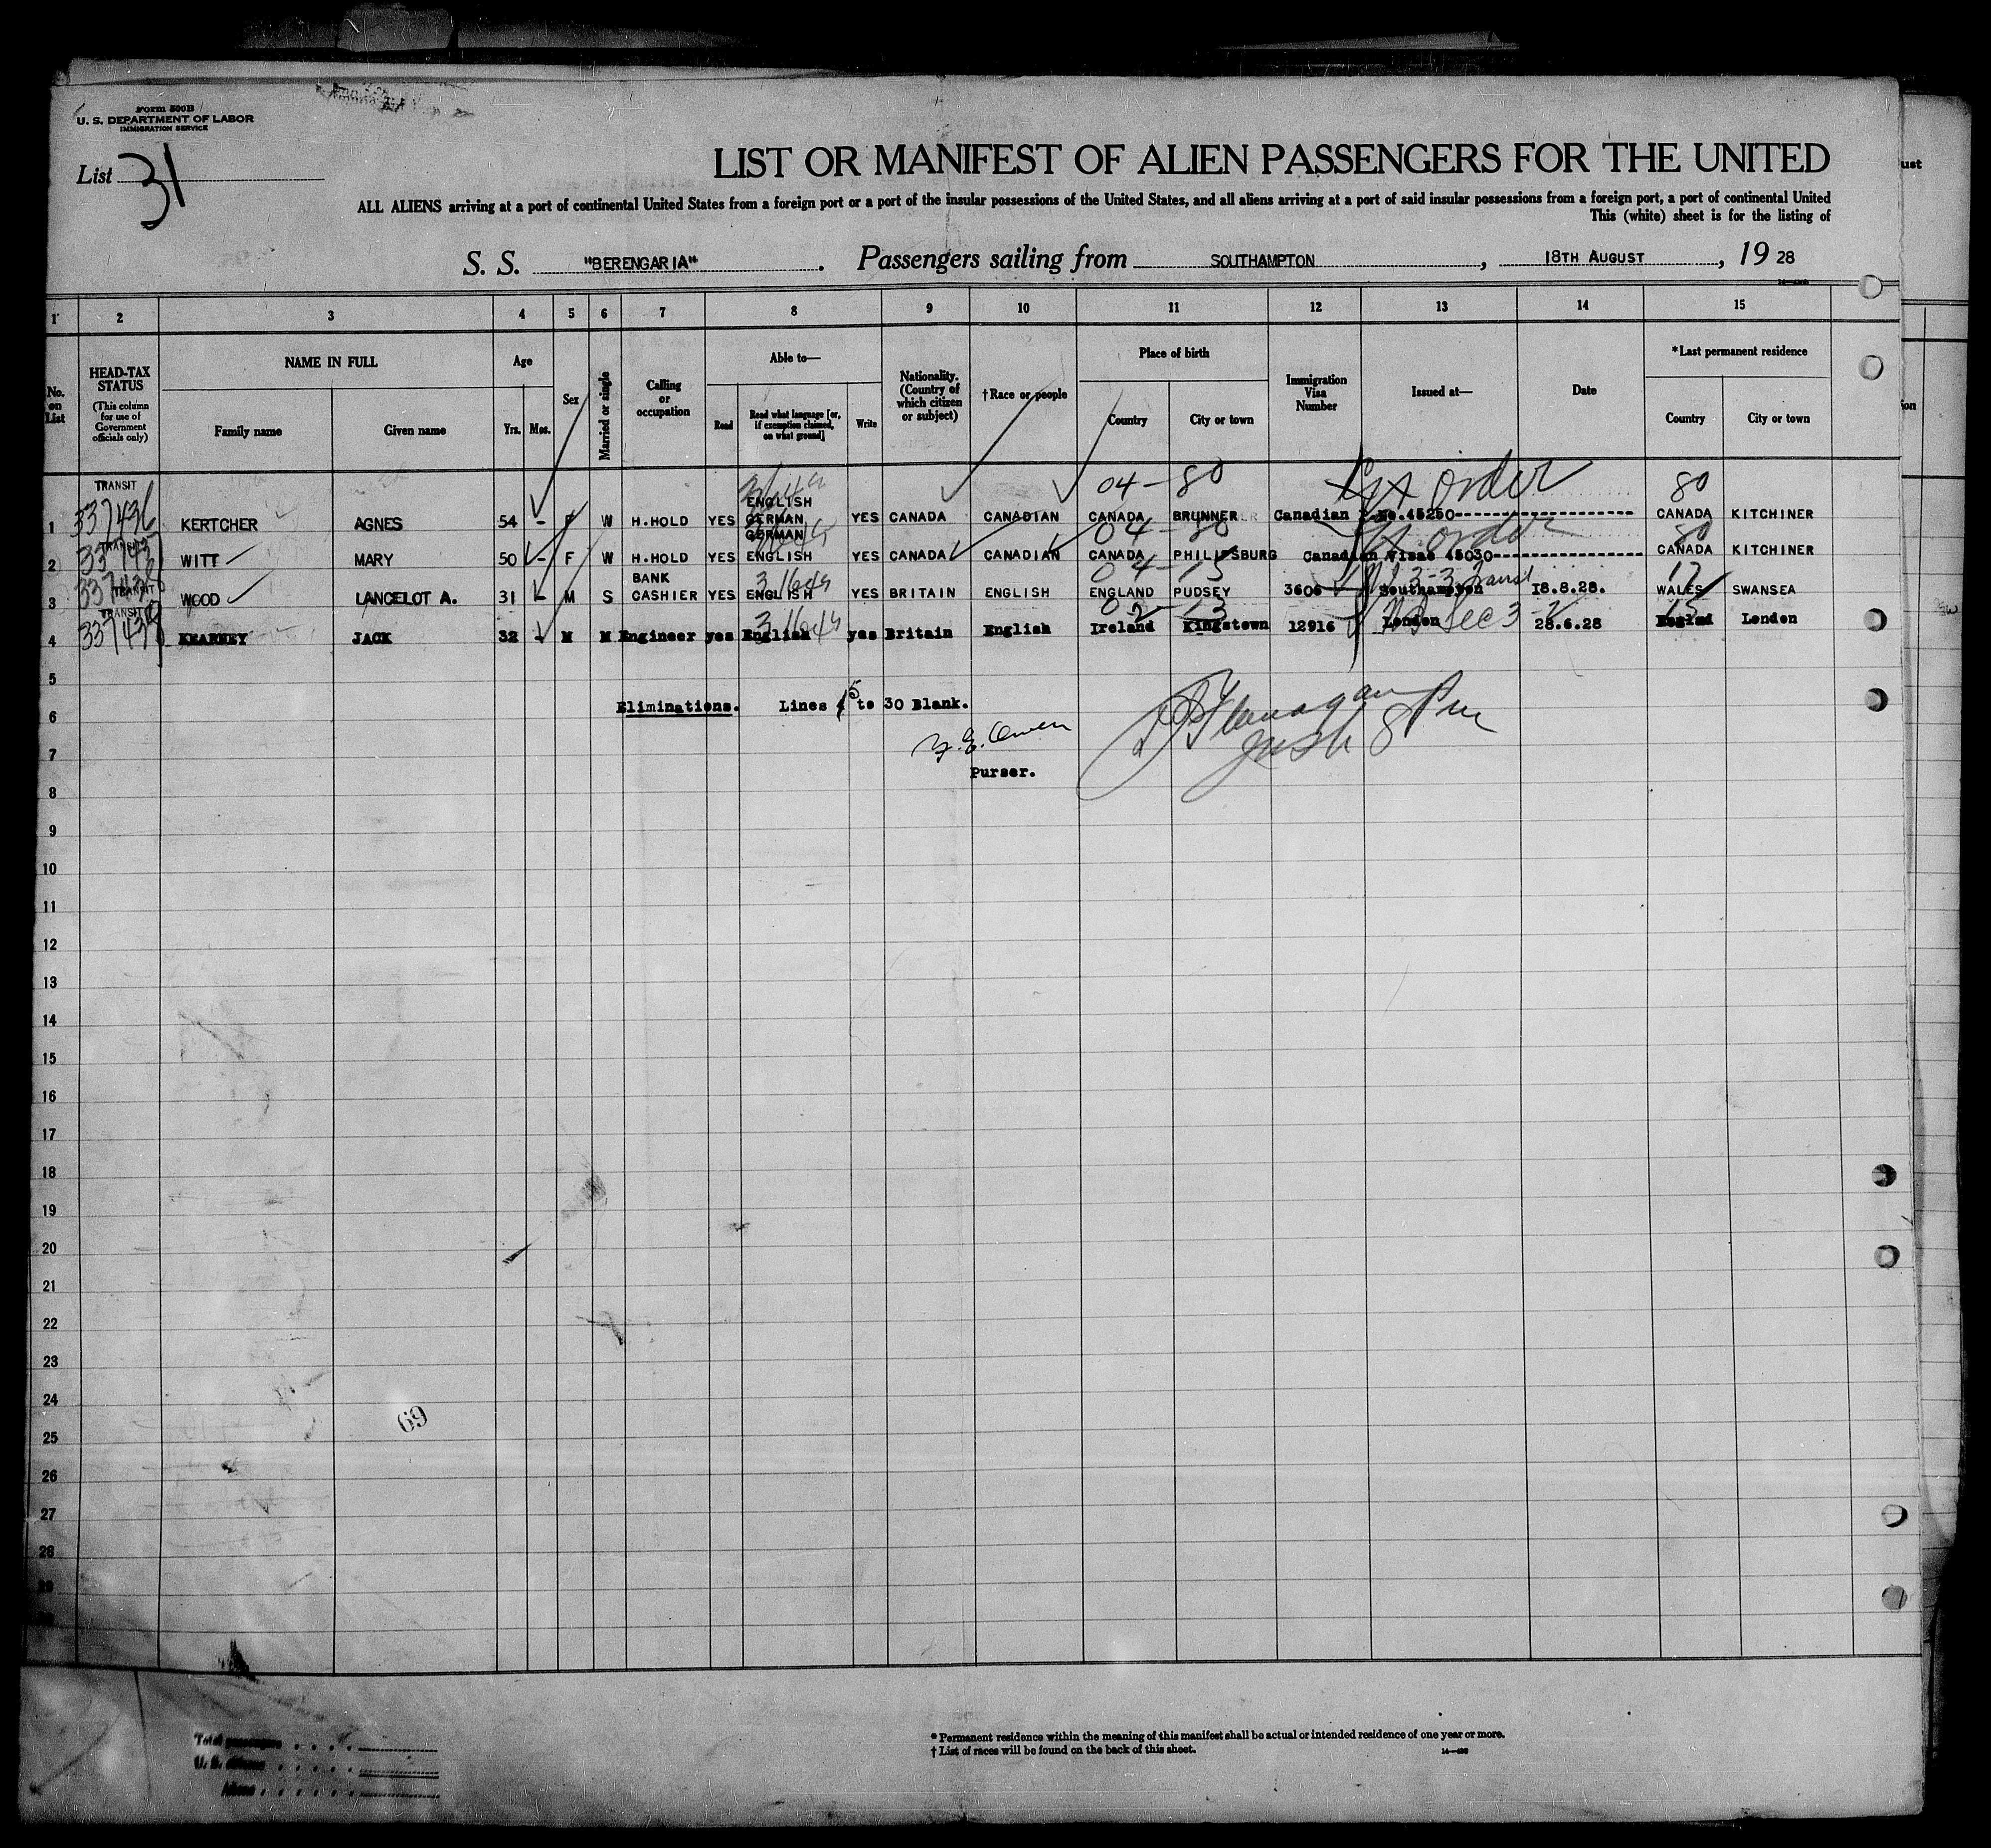 Form 500B
U. S. DEPARTMENT OF LABOR
IMMIGRATION SERVICE
List 31
LIST OR MANIFEST OF ALIEN PASSENGERS FOR THE UNITED
ALL ALIENS arriving at a port of continental United States from a foreign port or a port of the insular possessions of the United States, and all aliens arriving at a port of said insular possessions from a foreign port, a port of continental United
This (white) sheet is for the listing of
S. S. "BERENGARIA". Passengers sailing from SOUTHAMPTON, 18TH AUGUST, 19 28
1 2 3 4 5 6 7 8 9 10 11 12 13 14 15
No. on List
HEAD-TAX STATUS
(This column for use of Government officials only)
NAME IN FULL
Family name Given name
Age
Yrs. Mos.
Sex
Married or single
Calling or occupation
Able to—
Read
Read what language [or, if exemption claimed, on what ground]
Write
Nationality. (Country of which citizen or subject)
†Race or people
Place of birth
Country City or town
Immigration Visa Number
Issued at—
Date
*Last permanent residence
Country City or town
TRANSIT 04-80 order 80
ENGLISH
1 337436 KERTCHER AGNES 54 - F W H.HOLD YES GERMAN YES CANADA CANADIAN CANADA BRUNNER Canadian No.45250 CANADA KITCHINER
TRANSIT GERMAN 04-80 order 80
2 WITT MARY 50 - F W H.HOLD YES ENGLISH YES CANADA CANADIAN CANADA PHILIPSBURG Canadian Visae 45030 CANADA KITCHINER
TRANSIT BANK 04-13 3-3 17
3 WOOD LANCELOT A. 31 - M S CASHIER YES ENGLISH YES BRITAIN ENGLISH ENGLAND PUDSEY 3606 Southampton 18.8.28. WALES SWANSEA
TRANSIT 02-13 Sec 3-2 13
4 KEARNEY JACK 32 - M M Engineer yes English yes Britain English Ireland Kingstown 12916 London 28.6.28 England London
5
6 Eliminations. Lines 5 to 30 Blank.
7
Purser.
8
9
10
11
12
13
14
15
16
17
18
19
20
21
22
23
24
69
25
26
27
28
29
Total passengers
U. S. citizens
Aliens
* Permanent residence within the meaning of this manifest shall be actual or intended residence of one year or more.
† List of races will be found on the back of this sheet.